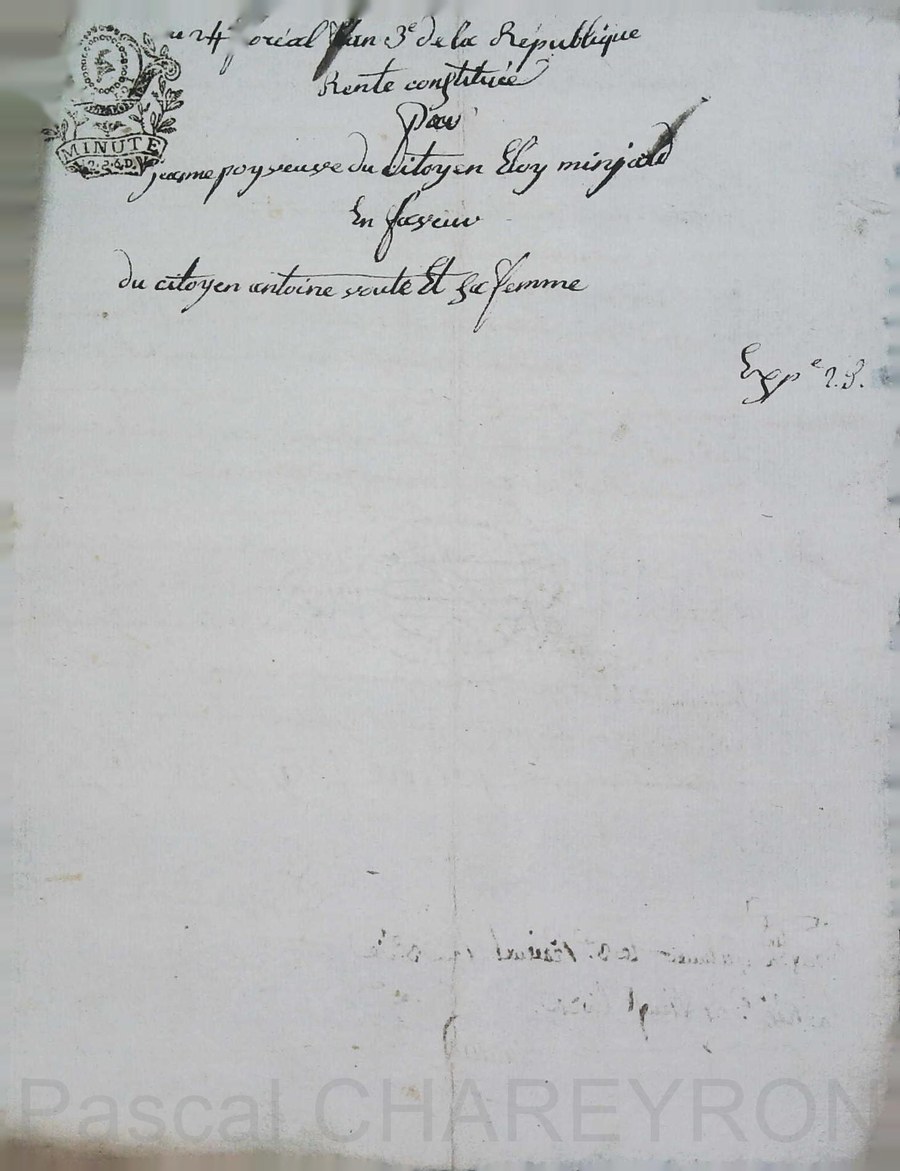 24 oréal l'an 3e de la République
Rente constituée
Par
jeanne poy veuve du Citoyen Eloy minjard
En faveur
du citoyen antoine voute Et sa femme
Expe 2.S.
MINUTE
Pascal CHAREYRON